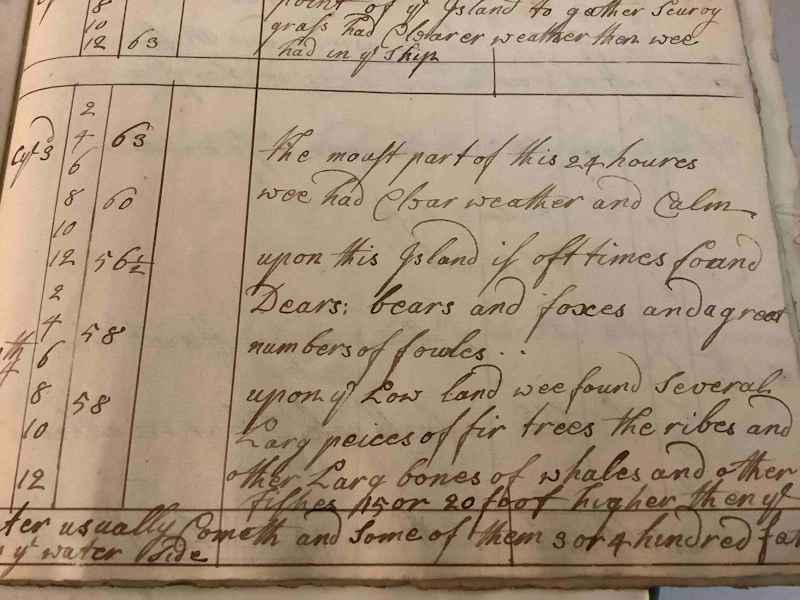 8 point of yᵉ Island to gather Scurvy
10 grass had Clearer weather then wee
12 63 had in yᵉ Ship
2
4 63
6 the moust part of this 24 houres
8 60 wee had Clear weather and Calm
10
12 56½ upon this Island is oft times found
2 Dears: bears and foxes and a great
4 58 numbers of fowles . .
6
8 58 upon yᵉ Low land wee found Several
10 Larg peices of fir trees the ribes and
12 other Larg bones of whales and other
fishes 15 or 20 foot higher then yᵉ
usually Cometh and Some of them 3 or 4 hundred
yᵉ water Side